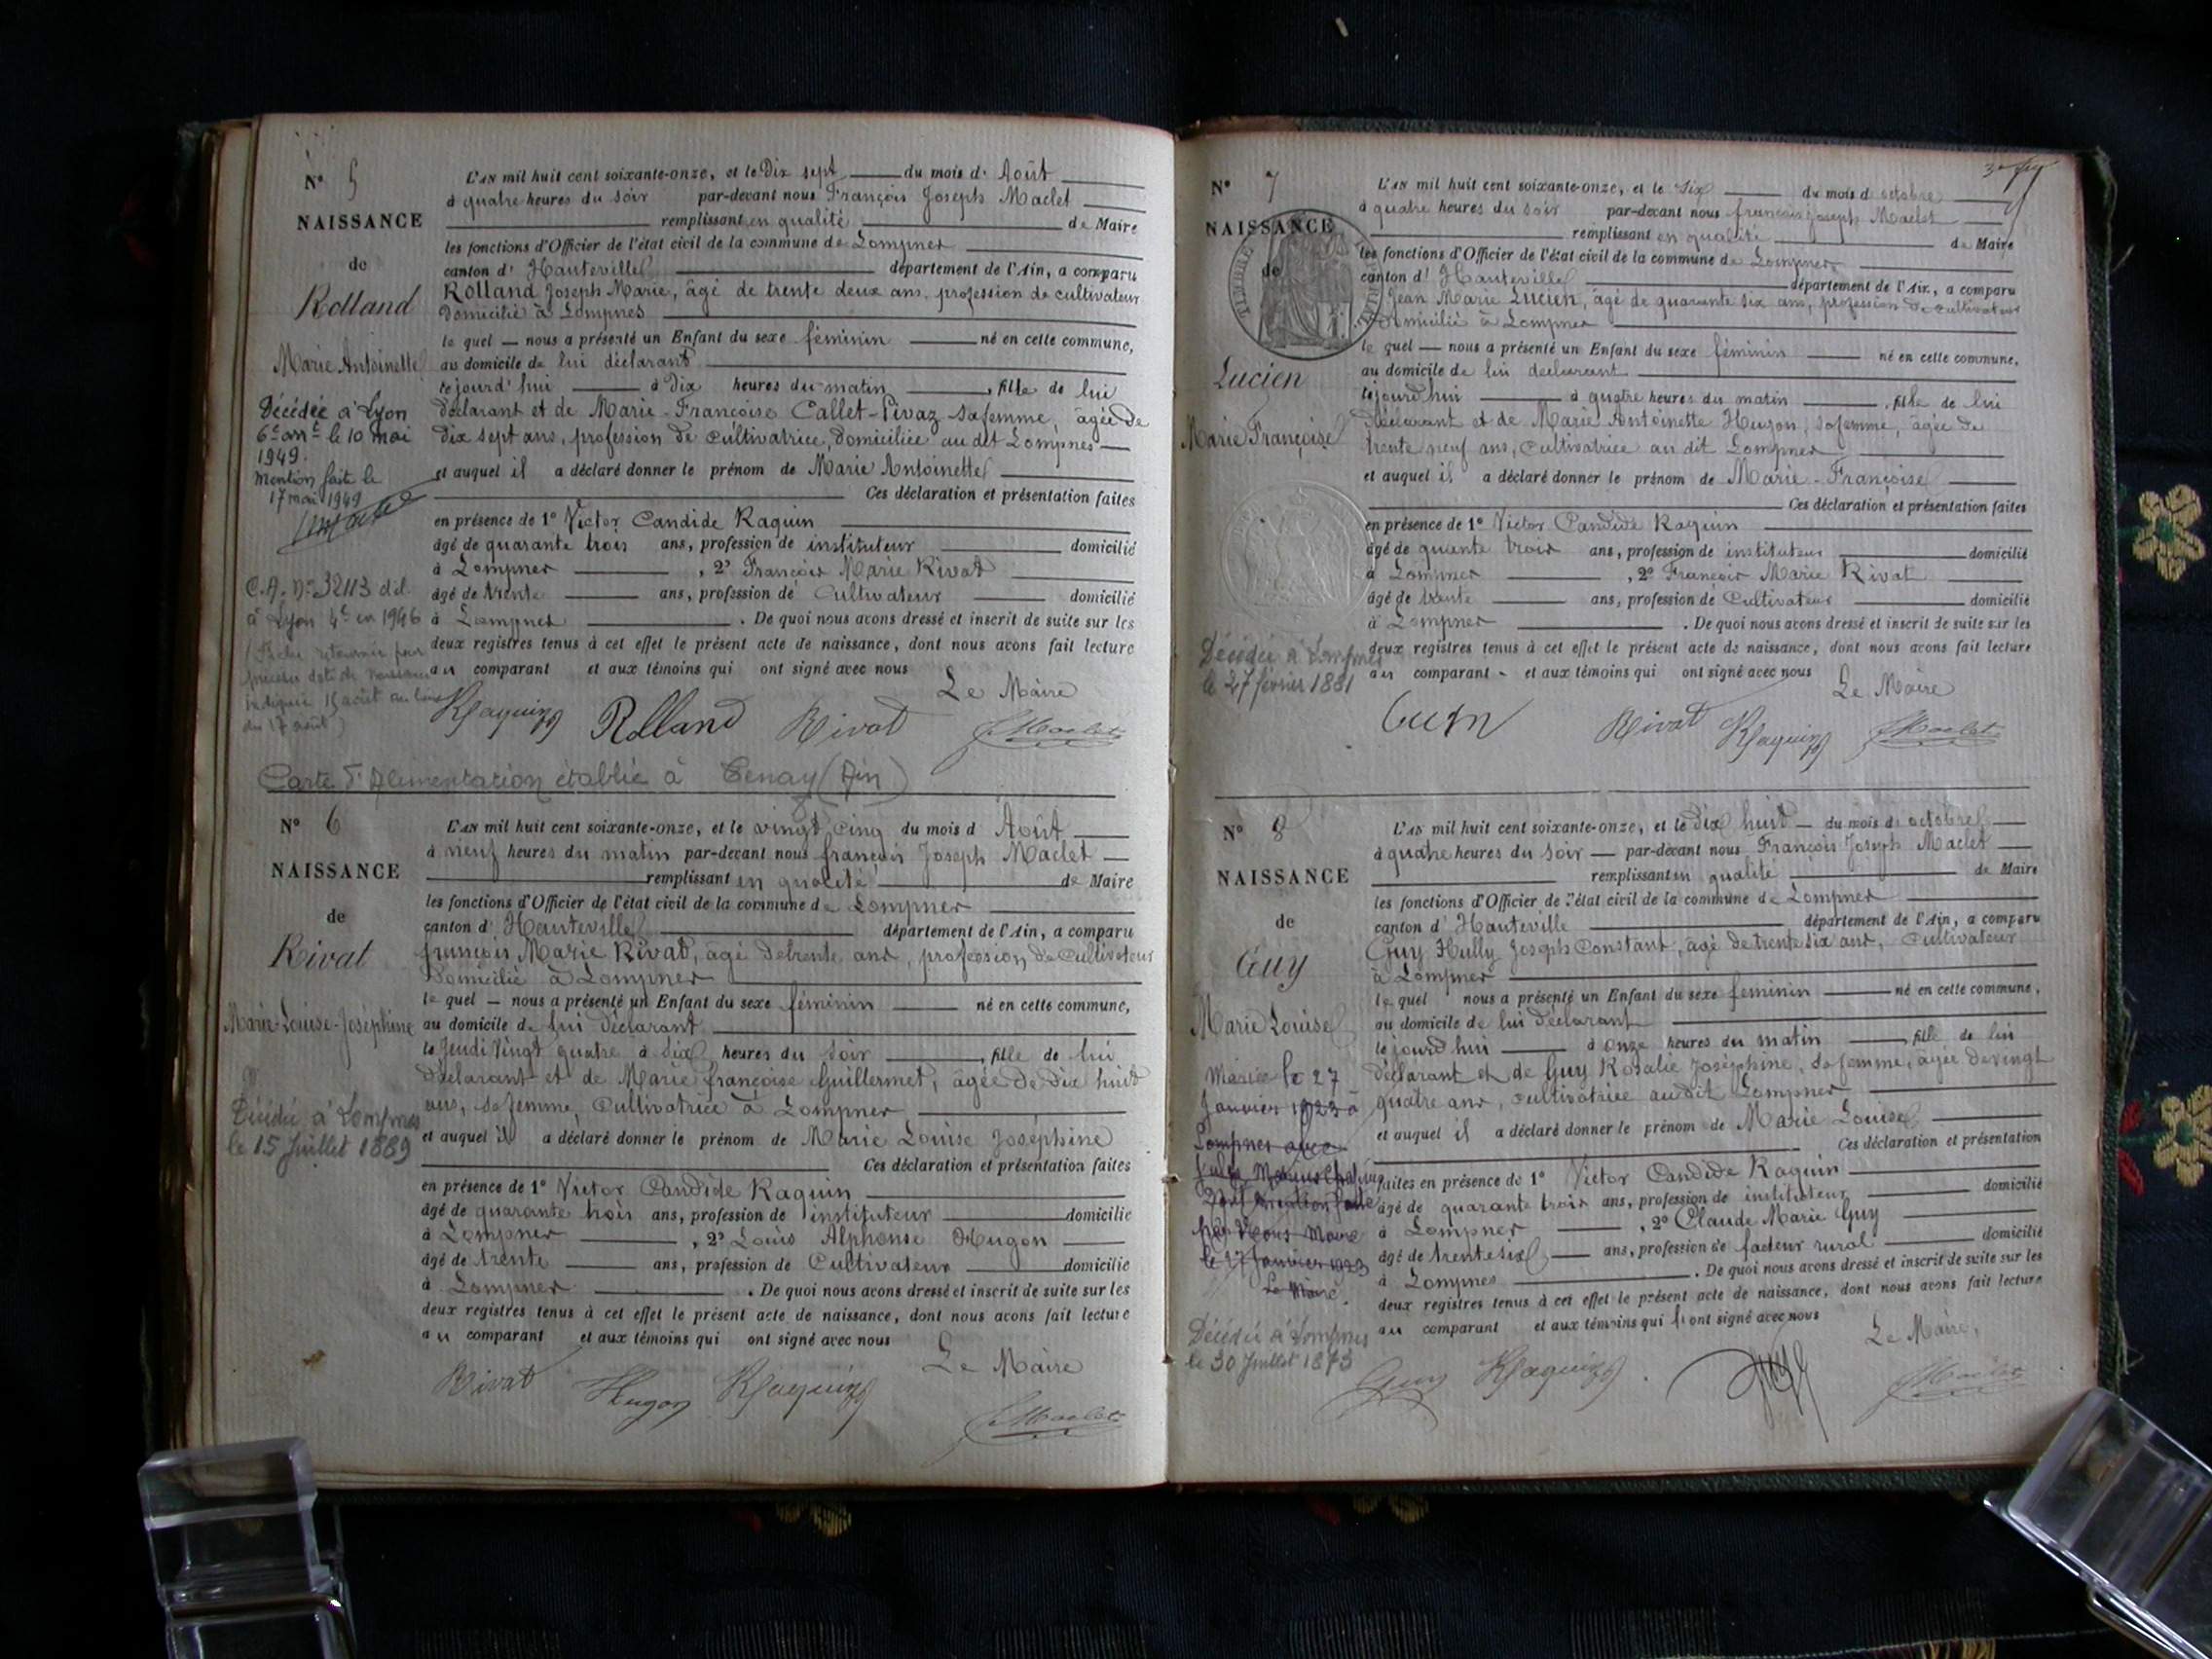 N° 5
NAISSANCE
de
Rolland
Marie Antoinette
Décédée à Lyon
6e arrt le 10 mai
1949.
Mention faite le
17 mai 1949
C.A. N° 32113 dél.
à Lyon 4e en 1946
L'AN mil huit cent soixante-onze, et le Dix sept du mois d' Août
à quatre heures du soir par-devant nous François Joseph Maclet
remplissant en qualité de Maire
les fonctions d'Officier de l'état civil de la commune de Lompnes
canton d' Hauteville département de l'Ain, a comparu
Rolland Joseph Marie, âgé de trente deux ans, profession de cultivateur
domicilié à Lompnes
le quel — nous a présenté un Enfant du sexe féminin né en cette commune,
au domicile de lui déclarant
le jourd'hui à Dix heures du matin, fille de lui
déclarant et de Marie-Françoise Callet-Pivaz sa femme, âgée de
dix sept ans, profession de cultivatrice, domiciliée au dit Lompnes
et auquel il a déclaré donner le prénom de Marie Antoinette
Ces déclaration et présentation faites
en présence de 1° Victor Candide Raquin
âgé de quarante trois ans, profession de instituteur domicilié
à Lompnes, 2° François Marie Rivat
âgé de trente ans, profession de Cultivateur domicilié
à Lompnes. De quoi nous avons dressé et inscrit de suite sur les
deux registres tenus à cet effet le présent acte de naissance, dont nous avons fait lecture
au comparant et aux témoins qui ont signé avec nous
Le Maire
Raquin Rolland Rivat Maclet
Carte d'Alimentation établie à Tenay (Ain)
N° 6
NAISSANCE
de
Rivat
Marie-Louise-Joséphine
Décédée à Lompnes
le 15 Juillet 1889
L'AN mil huit cent soixante-onze, et le vingt cinq du mois d Août
à neuf heures du matin par-devant nous françois Joseph Maclet
remplissant en qualité de Maire
les fonctions d'Officier de l'état civil de la commune de Lompnes
canton d' Hauteville département de l'Ain, a comparu
françois Marie Rivat, âgé de trente ans, profession de Cultivateur
Domicilié à Lompnes
le quel — nous a présenté un Enfant du sexe féminin né en cette commune,
au domicile de lui déclarant
le Jeudi Vingt quatre à Six heures du Soir, fille de lui
déclarant et de Marie françoise Guillermet, âgée de Dix huit
ans, sa femme, Cultivatrice à Lompnes
et auquel il a déclaré donner le prénom de Marie Louise Joséphine
Ces déclaration et présentation faites
en présence de 1° Victor Candide Raquin
âgé de quarante trois ans, profession de instituteur domicilié
à Lompnes, 2° Louis Alphonse Hugon
âgé de trente ans, profession de Cultivateur domicilié
à Lompnes. De quoi nous avons dressé et inscrit de suite sur les
deux registres tenus à cet effet le présent acte de naissance, dont nous avons fait lecture
au comparant et aux témoins qui ont signé avec nous
Le Maire
Rivat Hugon Raquin Maclet
N° 7
NAISSANCE
de
TIMBRE
Lucien
Marie Françoise
Décédée à Lompnes
le 27 février 1881
L'AN mil huit cent soixante-onze, et le Six du mois d octobre
à quatre heures du soir par-devant nous françois Joseph Maclet
remplissant en qualité de Maire
les fonctions d'Officier de l'état civil de la commune de Lompnes
canton d' Hauteville département de l'Ain, a comparu
Jean Marie Lucien, âgé de quarante six ans, profession de cultivateur
Domicilié à Lompnes
le quel — nous a présenté un Enfant du sexe féminin né en cette commune,
au domicile de lui déclarant
le jourd'hui à quatre heures du matin, fille de lui
déclarant et de Marie Antoinette Hugon, sa femme, âgée de
trente neuf ans, Cultivatrice au dit Lompnes
et auquel il a déclaré donner le prénom de Marie-Françoise
Ces déclaration et présentation faites
en présence de 1° Victor Candide Raquin
âgé de quante trois ans, profession de instituteur domicilié
à Lompnes, 2° François Marie Rivat
âgé de trente ans, profession de Cultivateur domicilié
à Lompnes. De quoi nous avons dressé et inscrit de suite sur les
deux registres tenus à cet effet le présent acte de naissance, dont nous avons fait lecture
au comparant - et aux témoins qui ont signé avec nous
Le Maire
Rivat Raquin Maclet
N° 8
NAISSANCE
de
Guy
Marie Louise
Mariée le 27
Janvier 1923 à
Lompnes avec
le 27 Janvier 1923
Le Maire
Décédée à Lompnes
le 30 Juillet 1873
L'AN mil huit cent soixante-onze, et le Dix huit du mois d octobre
à quatre heures du soir par-devant nous François Joseph Maclet
remplissant en qualité de Maire
les fonctions d'Officier de l'état civil de la commune de Lompnes
canton d' Hauteville département de l'Ain, a comparu
Guy Hully Joseph Constant, âgé de trente six ans, Cultivateur
à Lompnes
le quel nous a présenté un Enfant du sexe féminin né en cette commune,
au domicile de lui déclarant
le jourd'hui à onze heures du matin, fille de lui
déclarant et de Guy Rosalie Joséphine, sa femme, âgée de vingt
quatre ans, cultivatrice au dit Lompnes
et auquel il a déclaré donner le prénom de Marie Louise
Ces déclaration et présentation
faites en présence de 1° Victor Candide Raquin
âgé de quarante trois ans, profession de instituteur domicilié
à Lompnes, 2° Claude Marie Guy
âgé de trente six ans, profession de facteur rural domicilié
à Lompnes. De quoi nous avons dressé et inscrit de suite sur les
deux registres tenus à cet effet le présent acte de naissance, dont nous avons fait lecture
au comparant et aux témoins qui ont signé avec nous
Le Maire,
Guy Raquin Maclet